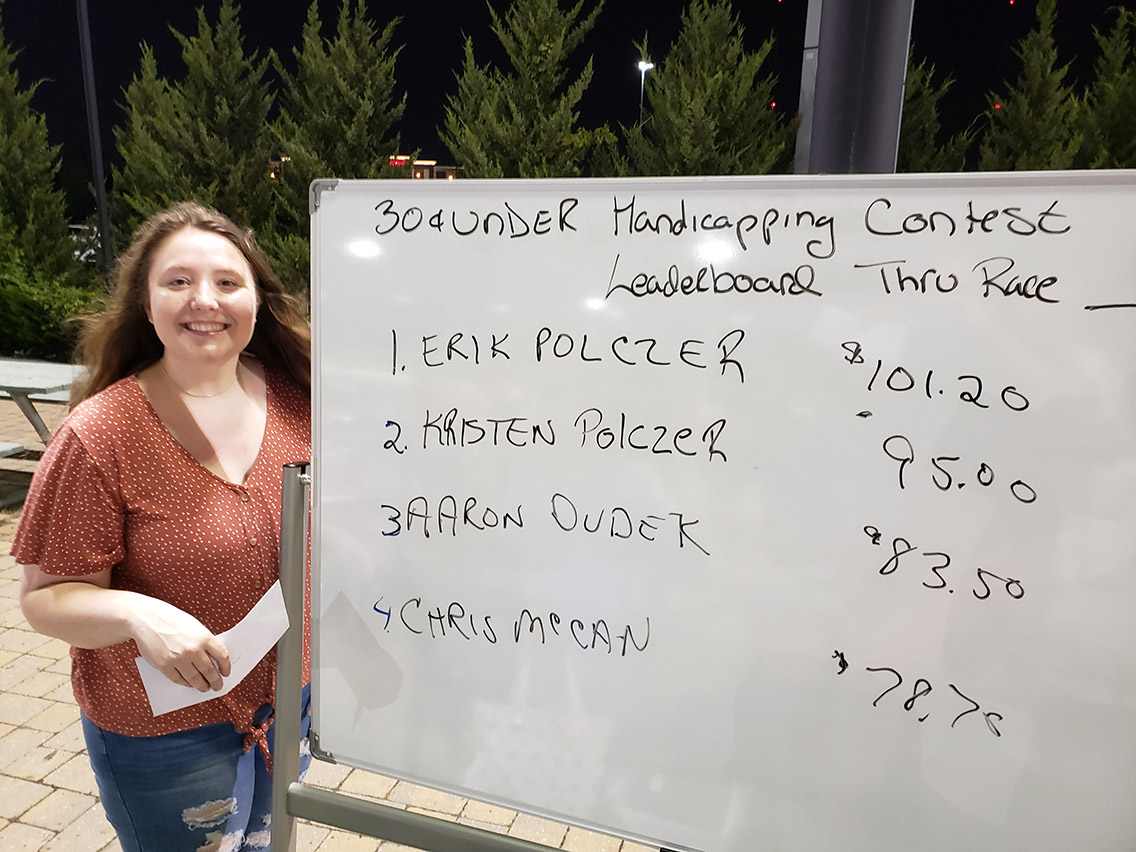 30 & UNDER Handicapping Contest
Leaderboard Thru Race __
1. ERIK POLCZER $101.20
2. KRISTEN POLCZER 95.00
3 AARON DUDEK $83.50
4. CHRIS McCAN $78.70